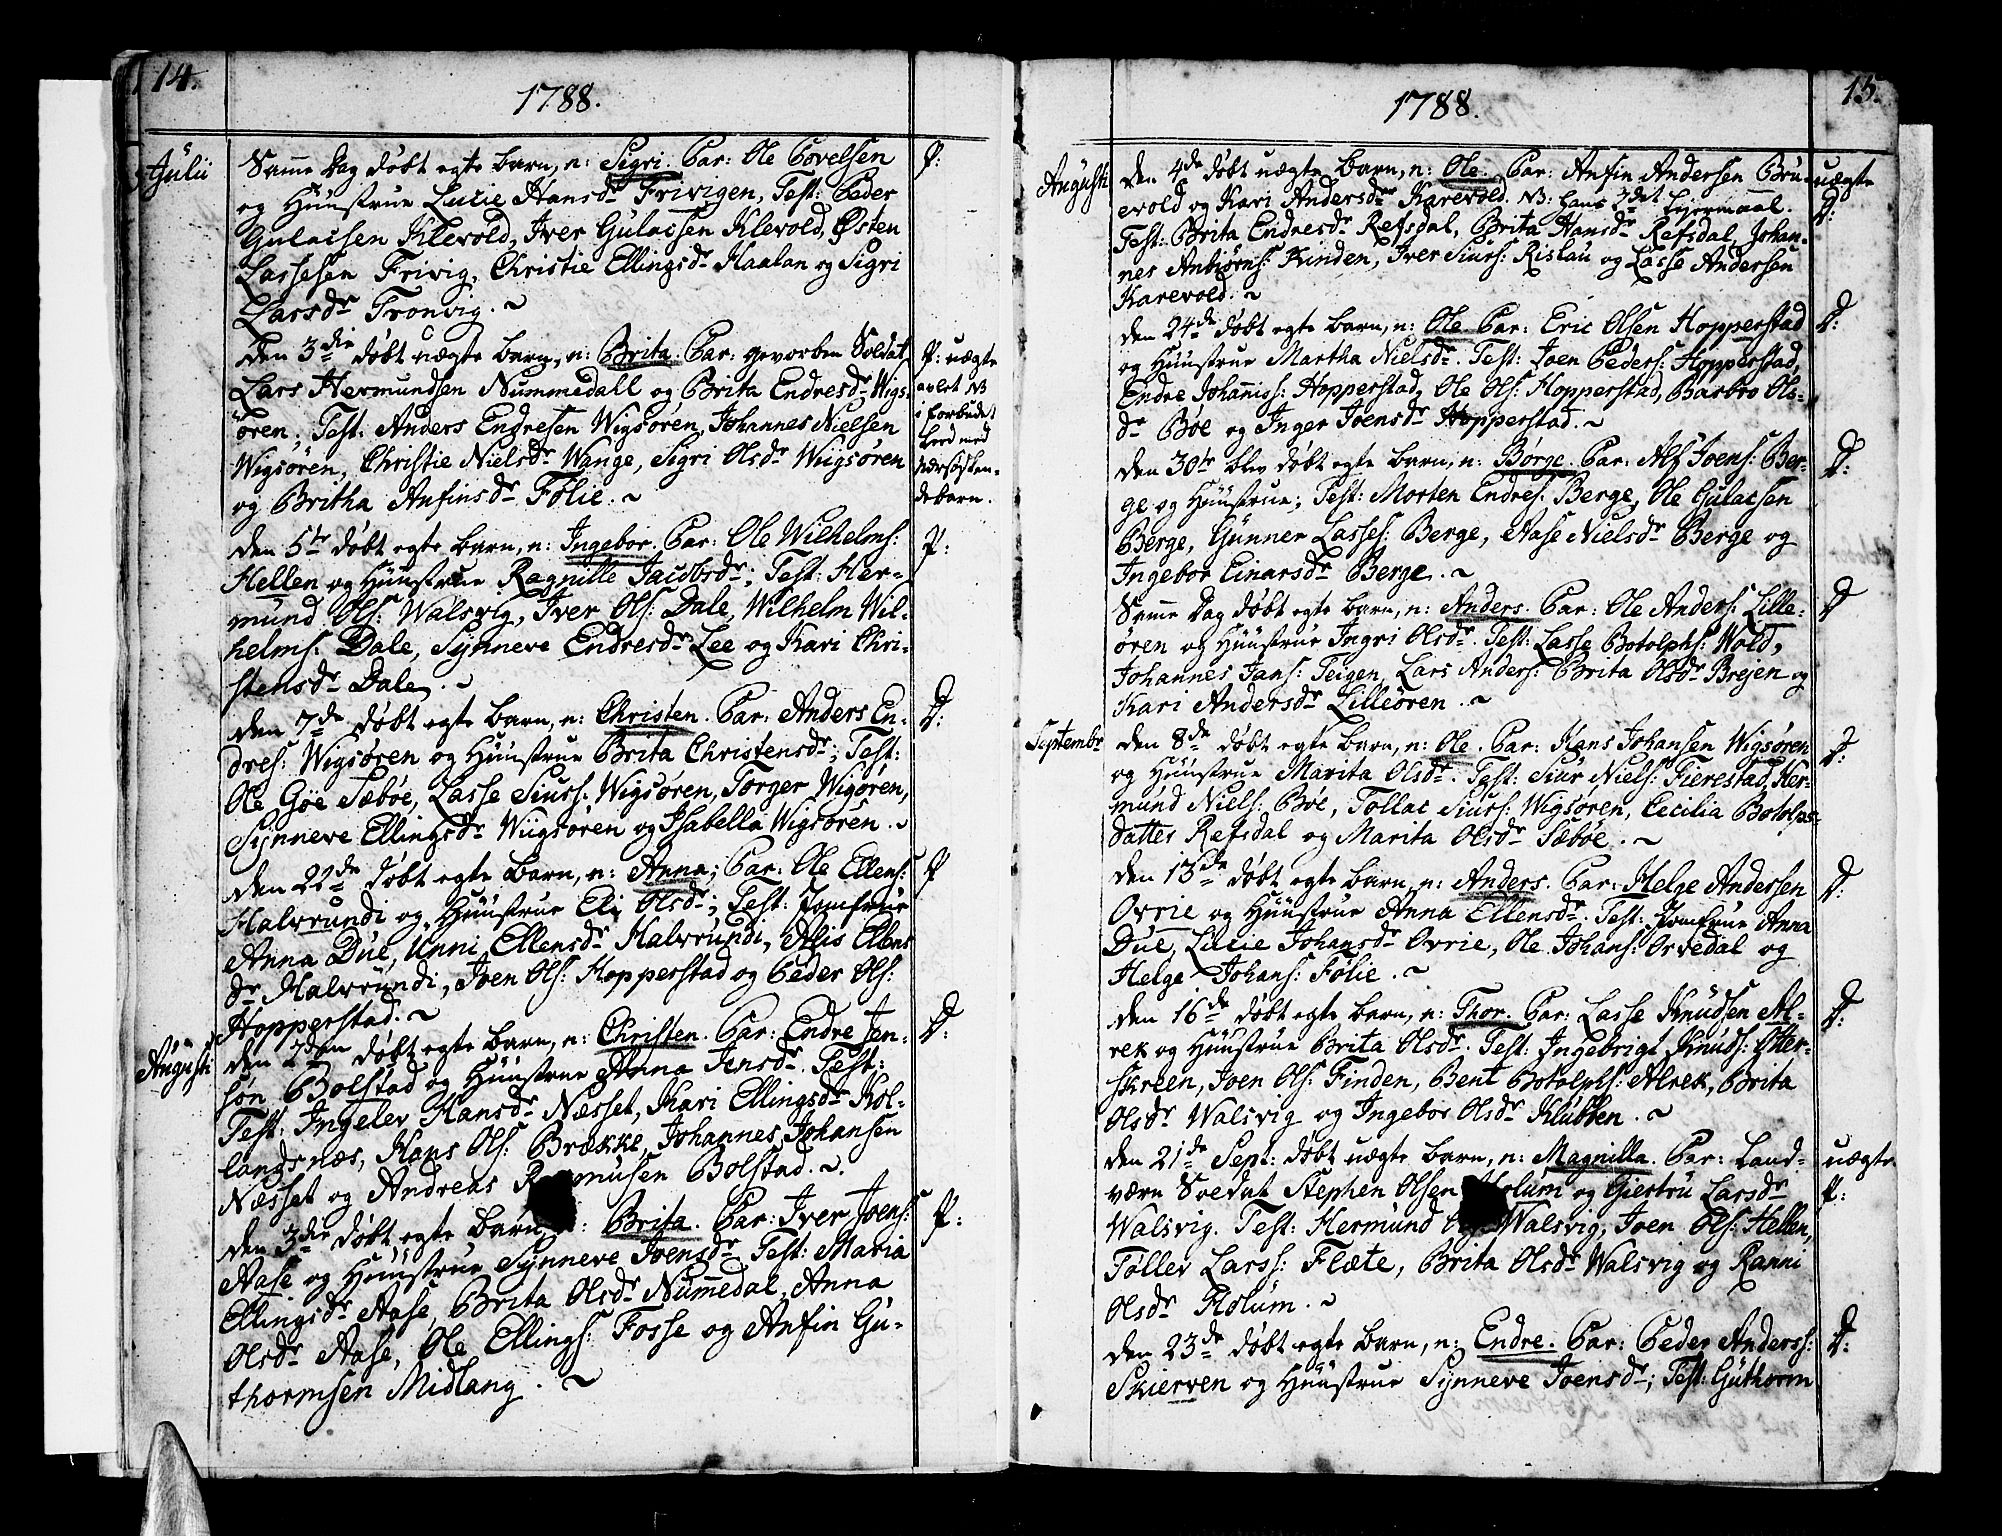 14.
1788.
Julii
Samme Dag døbt egte barn, n: Sigri. Par: Ole Povelsen
P:
og Huustrue Lucie Hansdr Frivigen, Test: Peder
Gulacsen Klevold, Iver Gulacsen Klevold, Østen
Lassesen Frivig, Christie Ellingsdr Haalan og Sigri
Larsdr Tronvig. ~
den 3die døbt uægte barn, n: Brita. Par: gevorben Soldat
P: uægte
Lars Hermundsen Nummedall og Brita Endresdr Wigs-
avlet NB
ören; Test: Anders Endresen Wigsören, Johannes Nielsen
i forbudet
Leed med
Wigsören, Christie Nielsdr Wange, Sigri Olsdr Wiigsören
Næstsødsken-
og Britha Anfinsdr Fölie. ~
debarn.
den 5te døbt egte barn, n: Ingebor. Par: Ole Wilhelms:
P:
Hellen og Huustrue Ragnille Jacobsdr; Test: Her-
mund Ols: Walsvig, Iver Ols: Dale, Wilhelm Wil-
helms: Dale, Synneve Endresdr Lee og Kari Chri-
stensdr Dale. ~
den 7de døbt egte barn, n: Christen. Par: Anders En-
D:
dres: Wigsören og Huustrue Brita Christensdr; Test:
Ole Göe Sæböe, Lasse Siurs: Wigsören, Torger Wigören,
Synneve Ellingsdr Wiigsoren og Isabella Wigsören. ~
den 22de døbt egte barn, n: Anna; Par: Ole Ellens:
P
Halvrundi og Huustrue Eli Olsdr; Test: Jomfrue
Anna Due, Unni Ellensdr Halvrundi, Alis Ellens
dr Halvrundi, Joen Ols: Hopperstad og Peder Ols:
Hopperstad. ~
Augusti
den 2den døbt egte barn, n: Christen. Par: Endre Jen-
D:
sön Bolstad og Huustrue Anna Jensdr. Test:
Test: Ingelev Hansdr Næsset, Kari Ellingsdr Kol-
landsnæs, Hans Ols: Brække, Johannes Johansen
Næsset og Andreas Rasmusen Bolstad. ~.
den 3die døbt egte barn, n: Brita. Par: Iver Joens:
P:
Aase og Huustrue Synneve Joensdr Test: Maria
Ellingsdr Aase, Brita Olsdr Nummedal, Anna
Olsdr Aase, Ole Ellings: Fosse og Anfin Gu-
thormsen Midlang. ~
15.
1788.
Augusti
den 4de döbt uægte barn, n: Ole. Par: Anfin Andersen Bru-
uægte
evold og Kari Andersdr Karevold. NB: hans 3det Leyermaal.
D:
Test: Brita Endresdr Refsdal, Brita Hansdr Refsdal, Johan-
nes Anbiörns: Kinden, Iver Siurs: Rislau og Lasse Andersen
Karevold. ~
den 24de döbt egte barn, n: Ole Par: Eric Olsen Hopperstad
D:
og Huustrue Martha Nielsdr. Test: Joen Peders: Hopperstad,
Endre Johannis: Hopperstad, Ole Ols: Hopperstad, Barbro Ols-
dr Böe og Inger Joensdr Hopperstad. ~
den 30te blev döbt egte barn, n: Börge. Par: Alf Joens: Ber-
D:
ge og Huustrue; Test: Morten Endres: Berge, Ole Gulacsen
Berge, Gunner Lasses: Berge, Aase Nielsdr Berge og
Ingebor Einarsdr Berge. ~
Samme Dag döbt egte barn, n: Anders. Par: Ole Anders: Lille-
D
ören og Huustrue Ingri Olsdr. Test: Lasse Botolphs: Wold,
Johannes Jans: Teigen, Lars Anders: Brita Olsdr Brejen og
Kari Andersdr Lilleören. ~
Septembr
den 8de döbt egte barn, n: Ole. Par: Hans Johansen Wigsören
D:
og Huustrue Marita Olsdr. Test: Siur Niels: Fierestad, Her-
mund Niels: Böe, Tollac Siurs: Wigsören, Cecilia Botolps-
datter Refsdal og Marita Olsdr Sæböe. ~
den 13de döbt egte barn, n: Anders. Par: Helge Andersen
D:
Ovrie og Huustrue Anna Ellensdr. Test: Jomfrue Anna
Due, Lucie Johansdr Ovrie, Ole Johans: Orvedal og
Helge Johans: Fölie. ~
den 16de döbt egte barn, n: Thor. Par: Lasse Knudsen Al-
D:
rek og Huustrue Brita Olsdr. Test: Ingebrigt Knuds: Otter-
skreen, Joen Ols: Finden, Bent Botolphs: Alrek, Brita
Olsdr Walsvig og Ingebor Olsdr Klubben. ~
den 21de Sept: döbt uægte barn, n: Magnilla. Par: Land-
uægte
værn Soldat Stephen Olsen Holum og Giertru Larsdr
P:
Walsvig. Test: Hermund Ols: Walsvig, Joen Ols: Hellen,
Töllev Larss: Flæte, Brita Olsdr Walsvig og Ranni
Olsdr Holum. ~
den 23de döbt egte barn, n: Endre. Par: Peder Anderss:
D:
Skierven og Huustrue Synneve Joensdr; Test: Guthorm